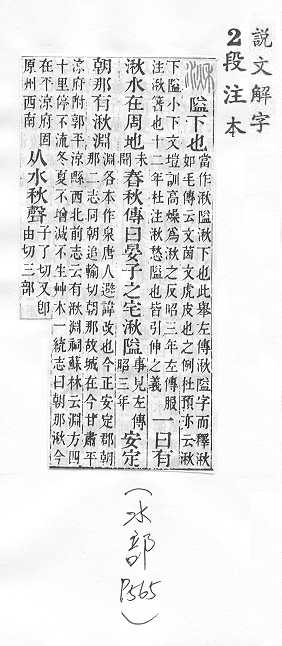 說文解字
2段注本
湫隘下也當作湫隘下也此舉左傳湫隘字而釋湫
如毛傳云文茵文虎皮也之例杜預亦云湫
下隘小下文塏訓高燥爲湫之反昭三年左傳服
注湫箸也十二年杜注湫愁隘也皆引伸之義一曰有
湫水在周地未聞春秋傳曰晏子之宅湫隘事見左傳昭三年安定
朝那有湫淵淵各本作泉唐人避諱改也今正安定郡朝
那二志同朝追輸切朝那故城在今甘肅平
涼府附郭平涼縣西北前志云有湫淵祠蘇林云淵方四
十里停不流冬夏不增減不生艸木一統志曰朝那湫今
在平涼府固
原州西南从水秋聲子了切又卽
由切三部
(水部
P565)